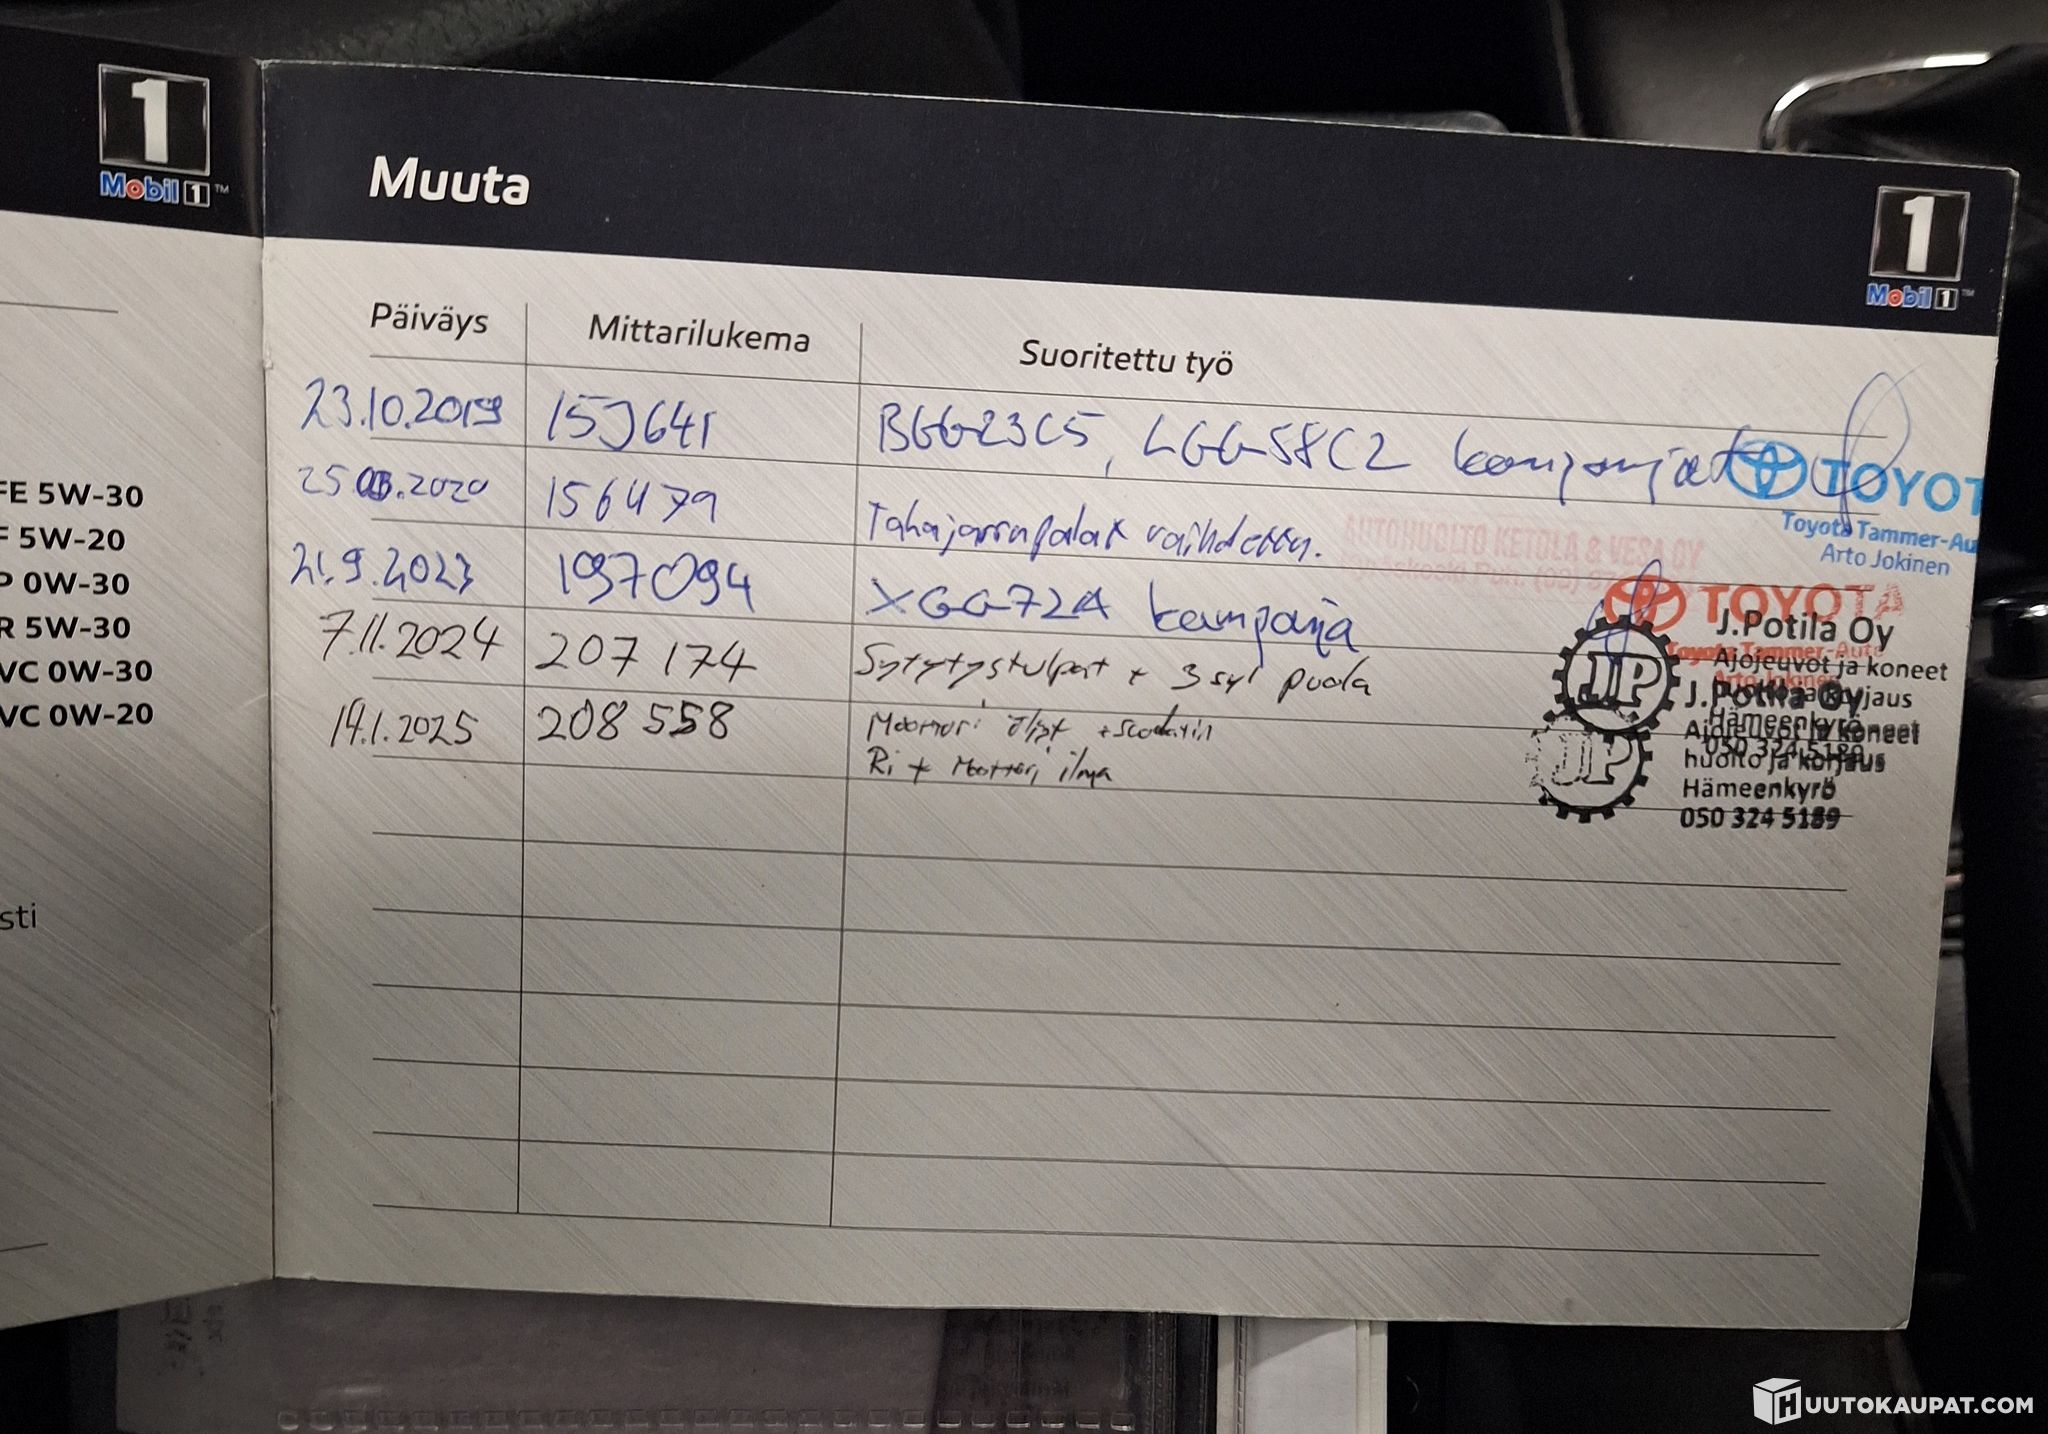 1
Mobil 1™
Muuta
1
Mobil 1™
Päiväys Mittarilukema Suoritettu työ
23.10.2019 153641 BGG23C5, LGG58C2 kampanjat
TOYOT
Toyota Tammer-Au
Arto Jokinen
25.05.2020 156479 Takajarrupalat vaihdettu.
AUTOHUOLTO KETOLA & VESA OY
21.9.2023 197094 XGG72A kampanja
TOYOTA
Toyota Tammer-Auto
Arto Jokinen
7.11.2024 207 174 Sytytystulpat + 3 syl puola
JP
J.Potila Oy
Ajojeuvot ja koneet
huolto ja korjaus
Hämeenkyrö
050 324 5189
14.1.2025 208 558 Moottori öljyt + suodatin
Ri + Moottori ilma
JP
J.Potila Oy
Ajojeuvot ja koneet
huolto ja korjaus
Hämeenkyrö
050 324 5189
FE 5W-30
F 5W-20
P 0W-30
R 5W-30
VC 0W-30
VC 0W-20
sti
HUUTOKAUPAT.COM